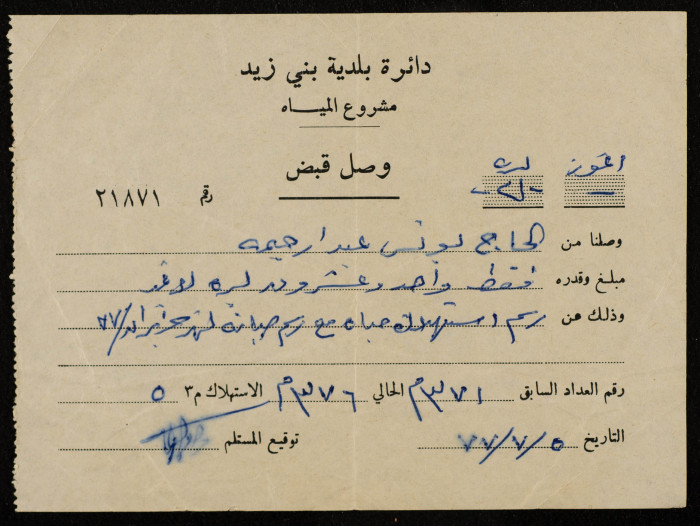 دائرة بلدية بني زيد
مشروع المياه
وصل قبض
اغوز ليره
— ٢١
رقم ٢١٨٧١
وصلنا من الحاج يونس عبد الرحيم
مبلغ وقدره فقط واحد وعشرون ليره لا غير
وذلك عن رسم استهلاك مياه مع رسم صيانة لشهر حزيران/٧٧
رقم العداد السابق ٣٧١م الحالي ٣٧٦م الاستهلاك م٣ ٥
التاريخ ٧٧/٧/٥ توقيع المستلم